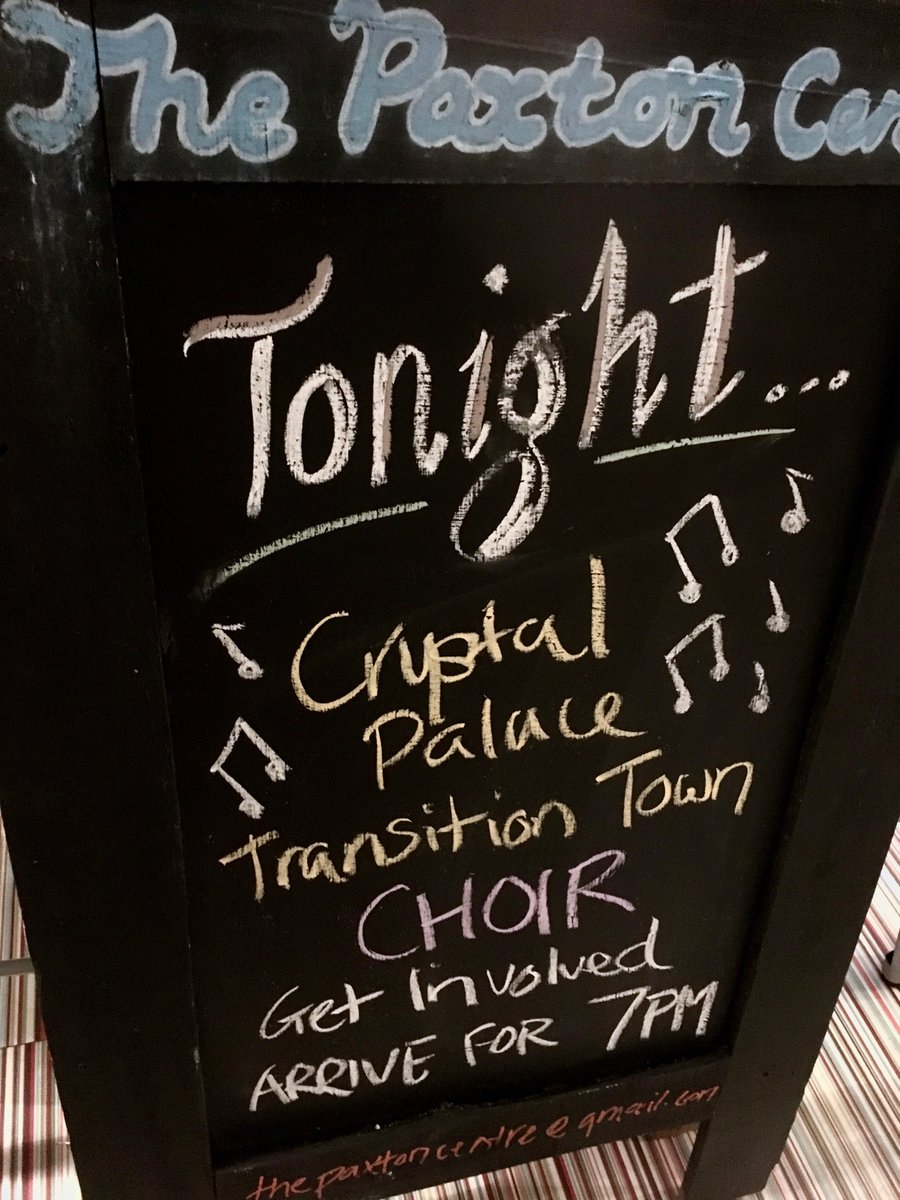 The Paxton Cen
Tonight...
Cryptal
Palace
Transition Town
CHOIR
Get Involved
ARRIVE FOR 7PM
thepaxtoncentre@gmail.com